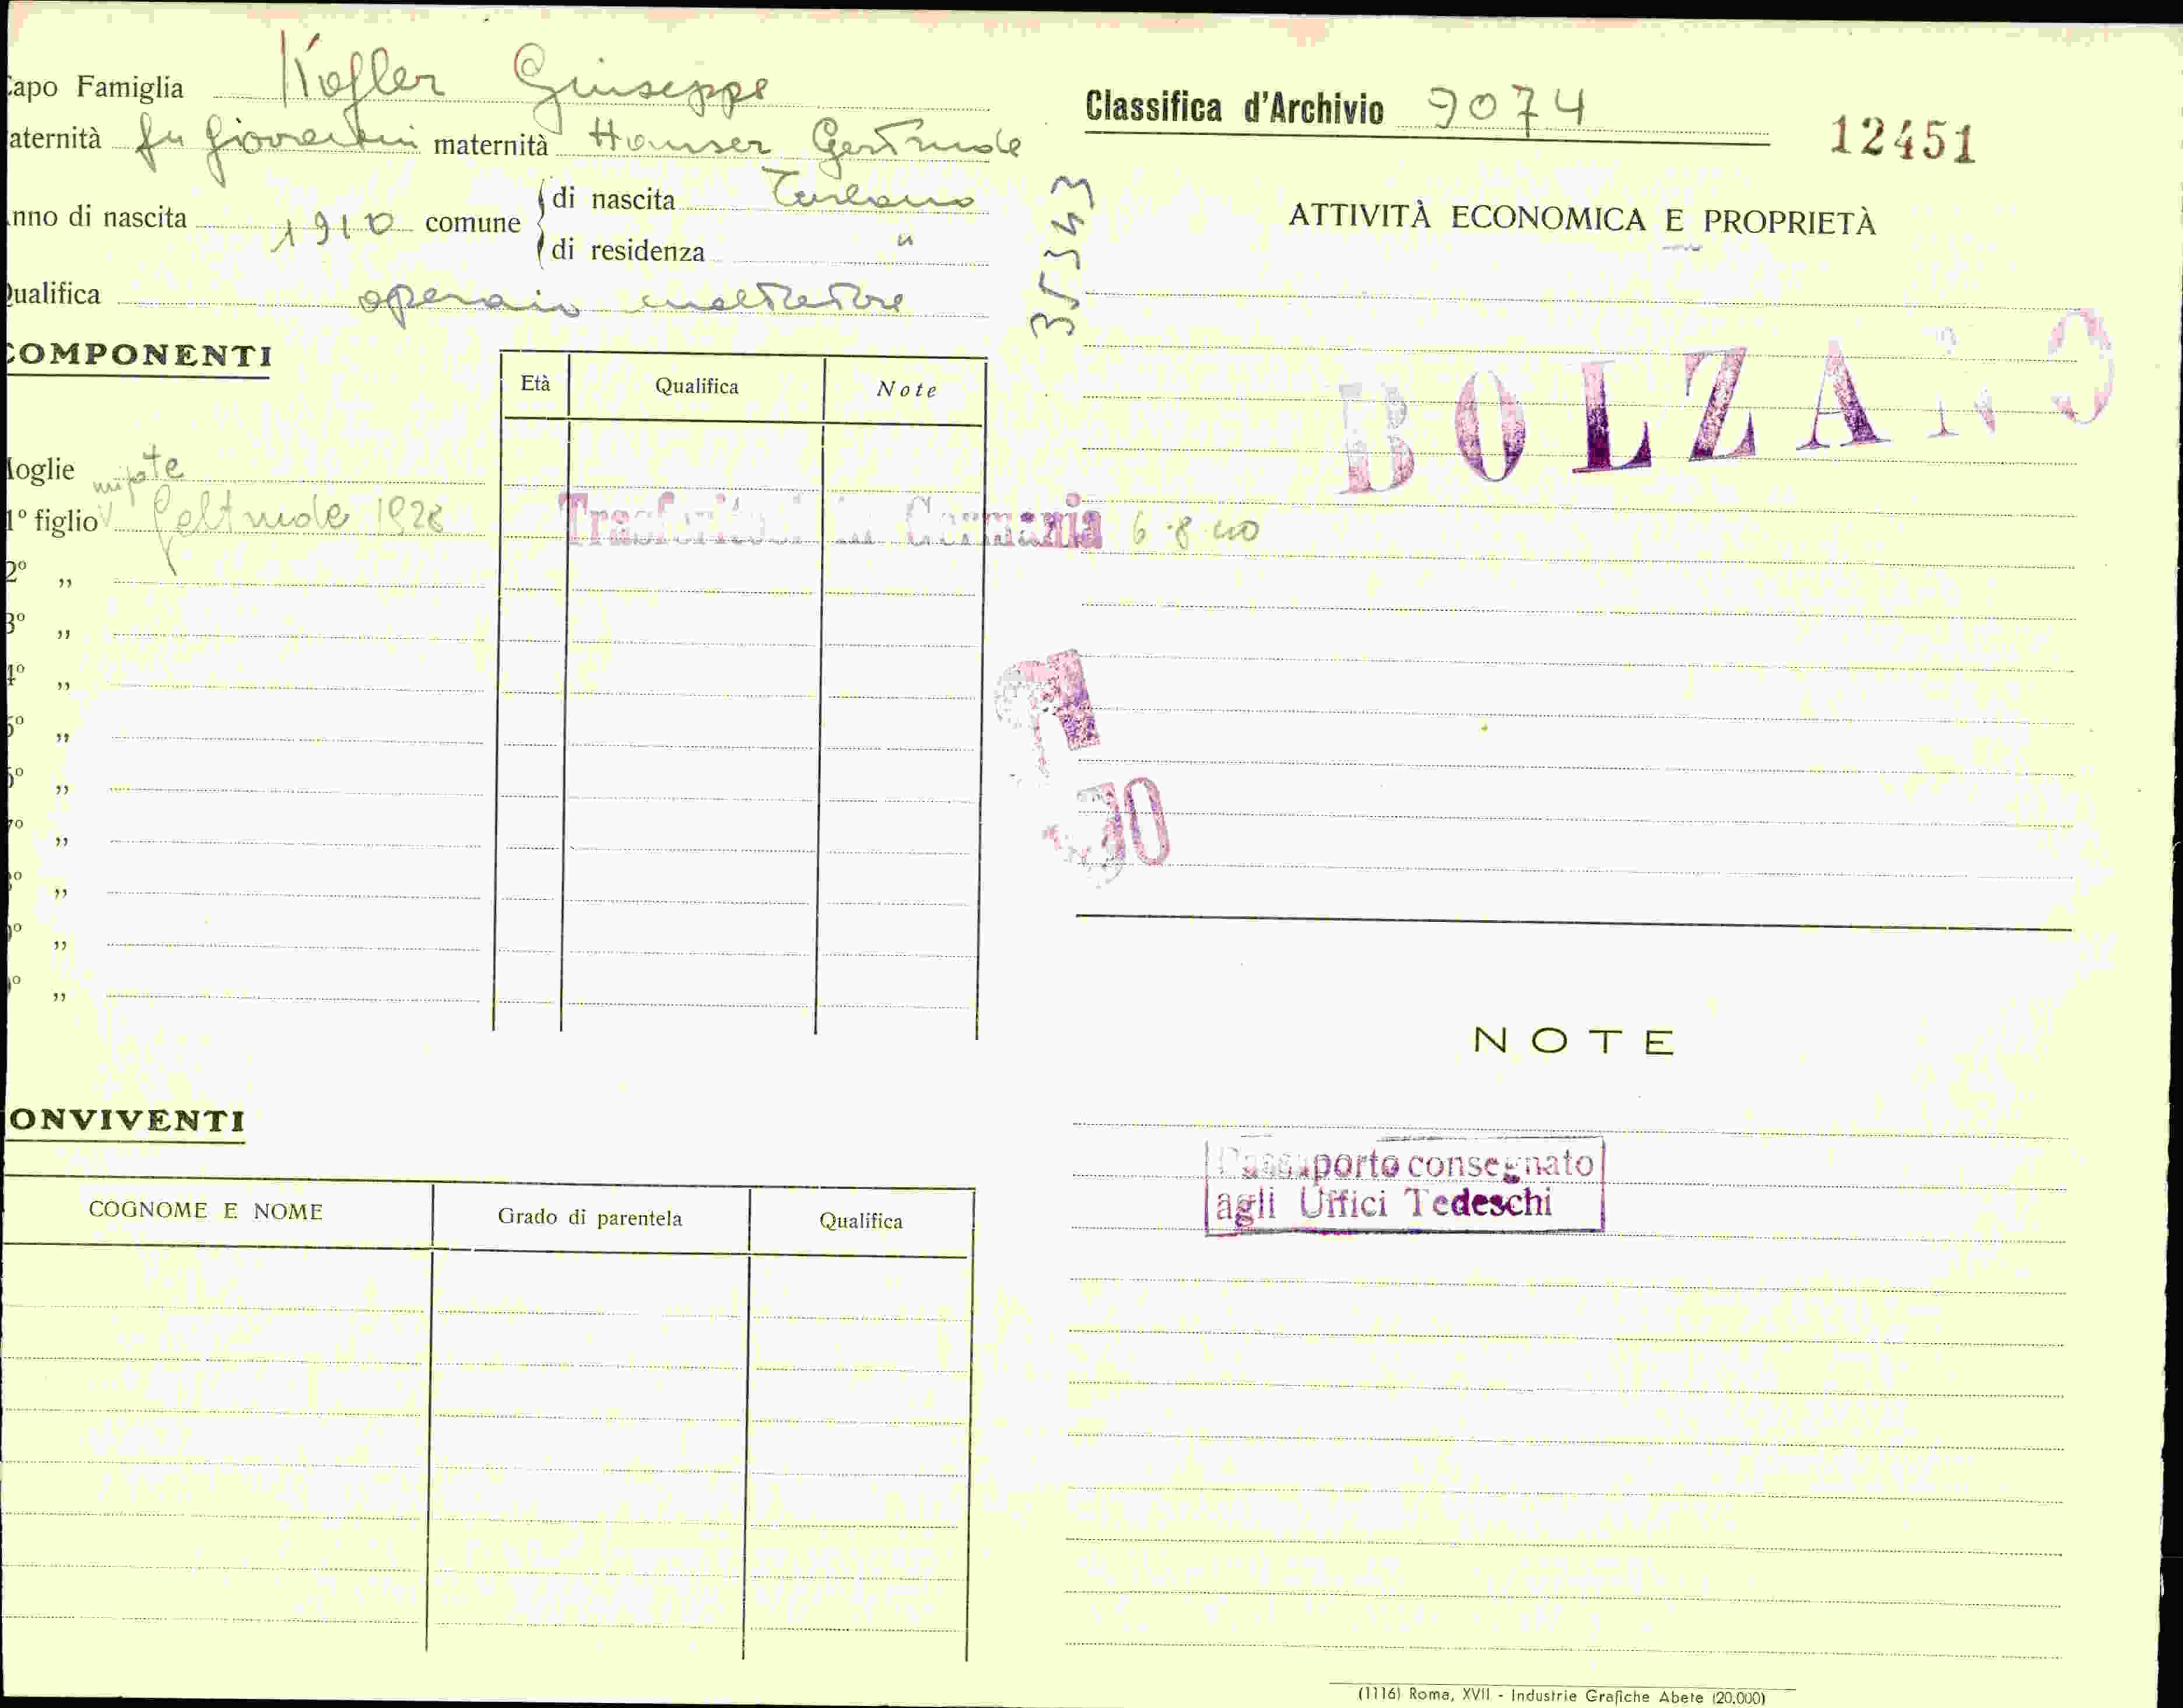 Capo Famiglia Kofler Giuseppe
aternità fu Giovanni maternità Hauser Gertrude
nno di nascita 1910 comune di nascita Terlano
di residenza "
Qualifica operaio
COMPONENTI
Età Qualifica Note
Moglie
nipote
1° figlio Geltrude 1928 Trasferitosi in Germania 6-8-40
2° „
3° „
4° „
5° „
6° „
7° „
8° „
9° „
° „
ONVIVENTI
COGNOME E NOME Grado di parentela Qualifica
Classifica d'Archivio 9074
12451
35343
ATTIVITÀ ECONOMICA E PROPRIETÀ
BOLZANO
NOTE
Passaporto consegnato
agli Uffici Tedeschi
(1116) Roma, XVII - Industrie Grafiche Abete (20.000)